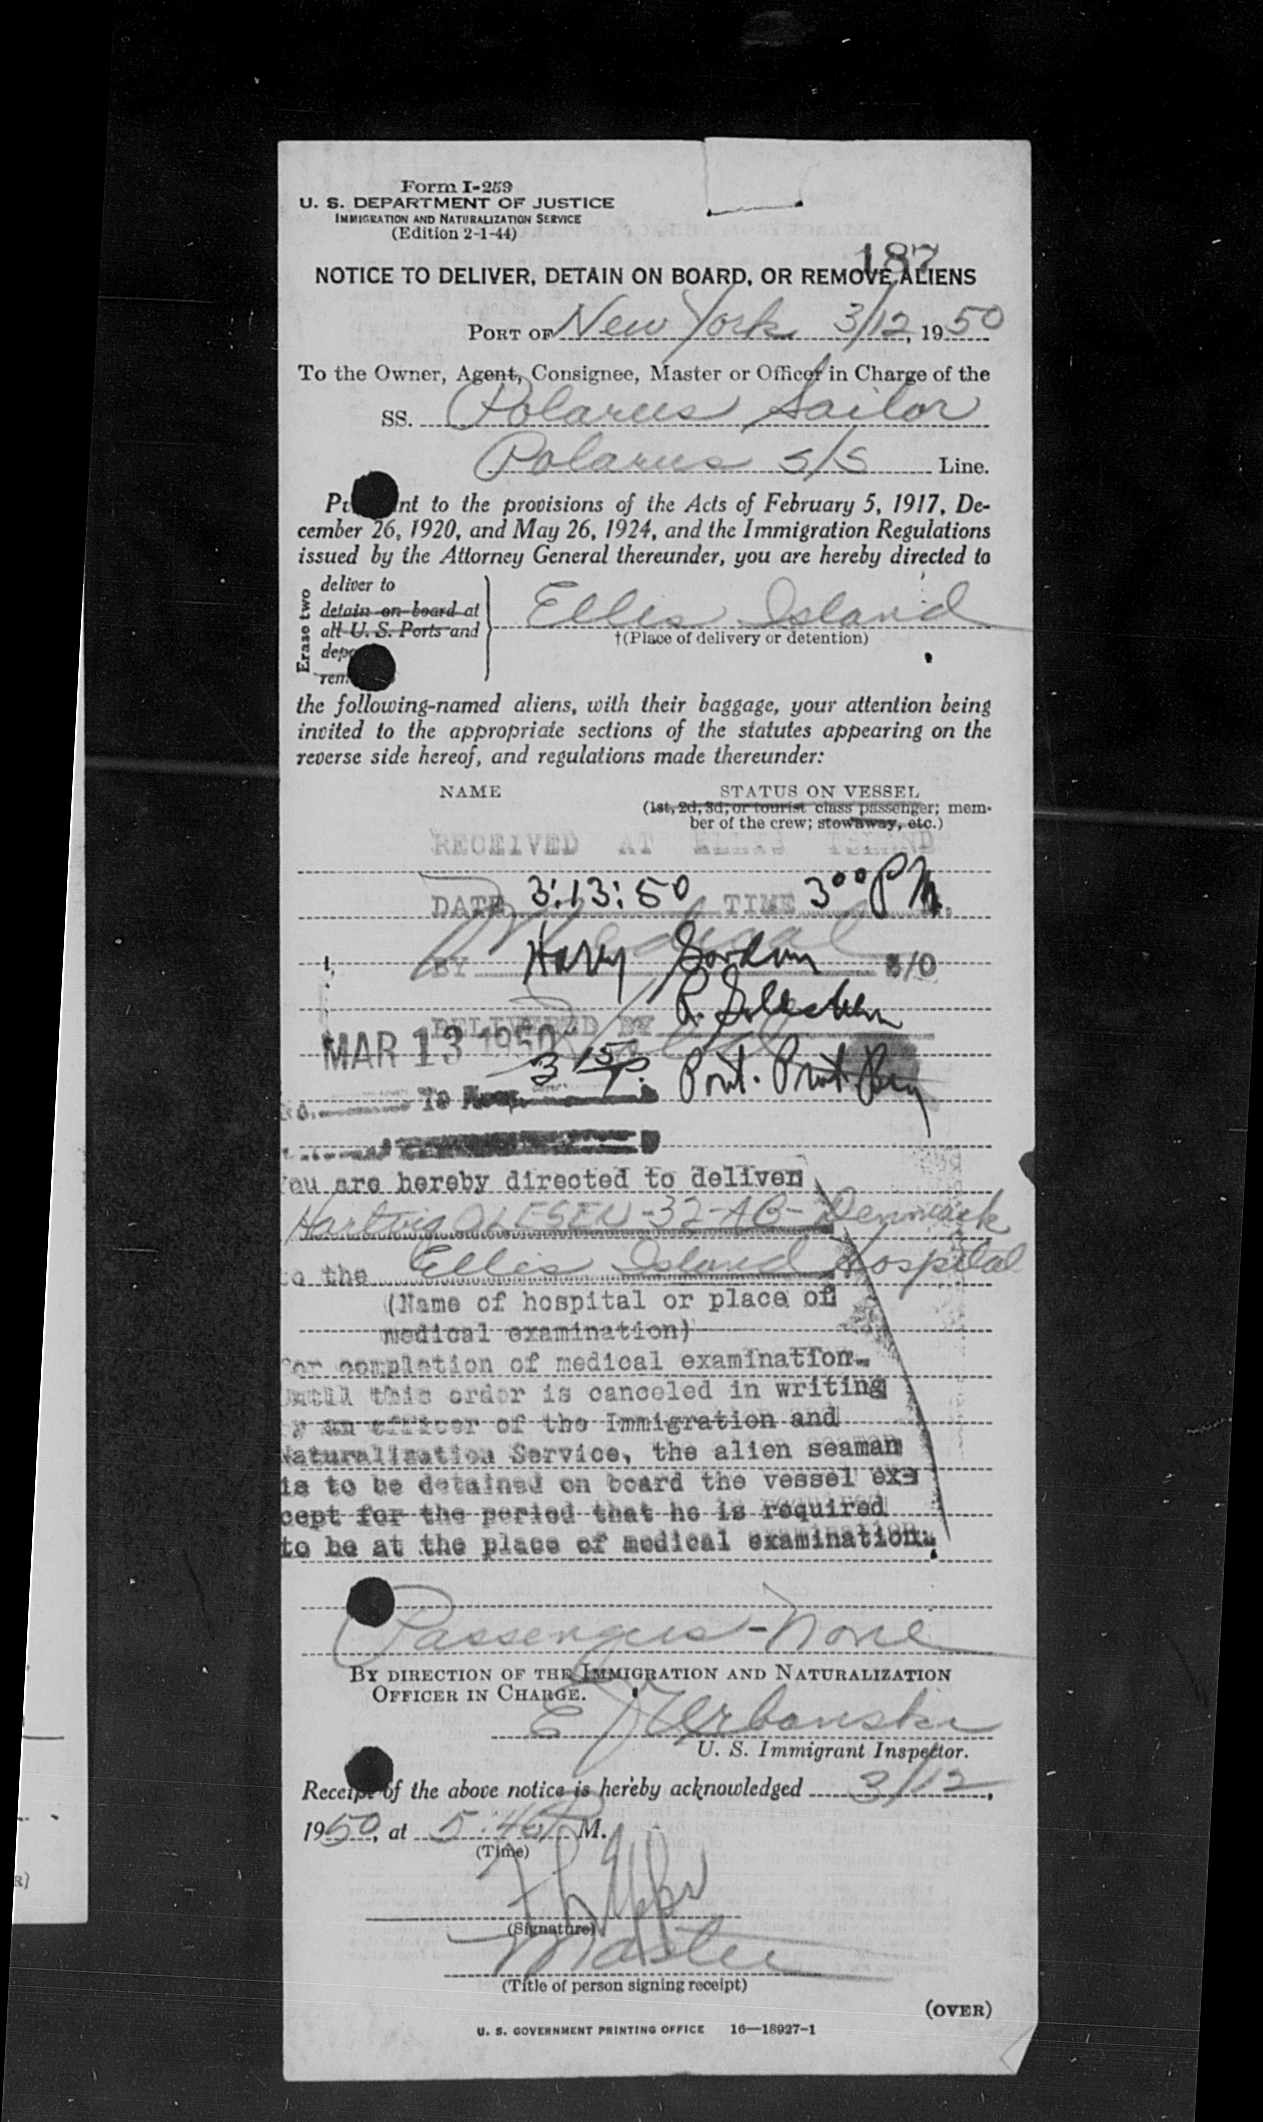 Form I-259
U. S. DEPARTMENT OF JUSTICE
IMMIGRATION AND NATURALIZATION SERVICE
(Edition 2-1-44)
187
NOTICE TO DELIVER, DETAIN ON BOARD, OR REMOVE ALIENS
PORT OF New York 3/12, 1950
To the Owner, Agent, Consignee, Master or Officer in Charge of the
SS. Polarus Sailor
Polarus S/S Line.
nt to the provisions of the Acts of February 5, 1917, De-
cember 26, 1920, and May 26, 1924, and the Immigration Regulations
issued by the Attorney General thereunder, you are hereby directed to
Erase two
deliver to
detain on board at
all U. S. Ports and
Ellis Island
†(Place of delivery or detention)
the following-named aliens, with their baggage, your attention being
invited to the appropriate sections of the statutes appearing on the
reverse side hereof, and regulations made thereunder:
NAME STATUS ON VESSEL
(1st, 2d, 3d, or tourist class passenger; mem-
ber of the crew; stowaway, etc.)
RECEIVED AT ELLIS ISLAND
DATE 3:13:50 TIME 3 00 P M.
Medical
BY Harry Gordon S/O
DELIVERED BY R.
MAR 13 1950
3 15 P.
You are hereby directed to deliver
Hartvig OLESEN-32-AB-Denmark
to the Ellis Island Hospital
(Name of hospital or place of
medical examination)
for completion of medical examination.
Until this order is canceled in writing
by an officer of the Immigration and
Naturalization Service, the alien seaman
is to be detained on board the vessel ex-
cept for the period that he is required
to be at the place of medical examination.
Passengers - None
BY DIRECTION OF THE IMMIGRATION AND NATURALIZATION
OFFICER IN CHARGE.
E J Urbanski
U. S. Immigrant Inspector.
Receipt of the above notice is hereby acknowledged 3/12,
1950, at 5:46 P. M.
(Time)
(Signature)
Master
(Title of person signing receipt)
(OVER)
U. S. GOVERNMENT PRINTING OFFICE 16—18927-1